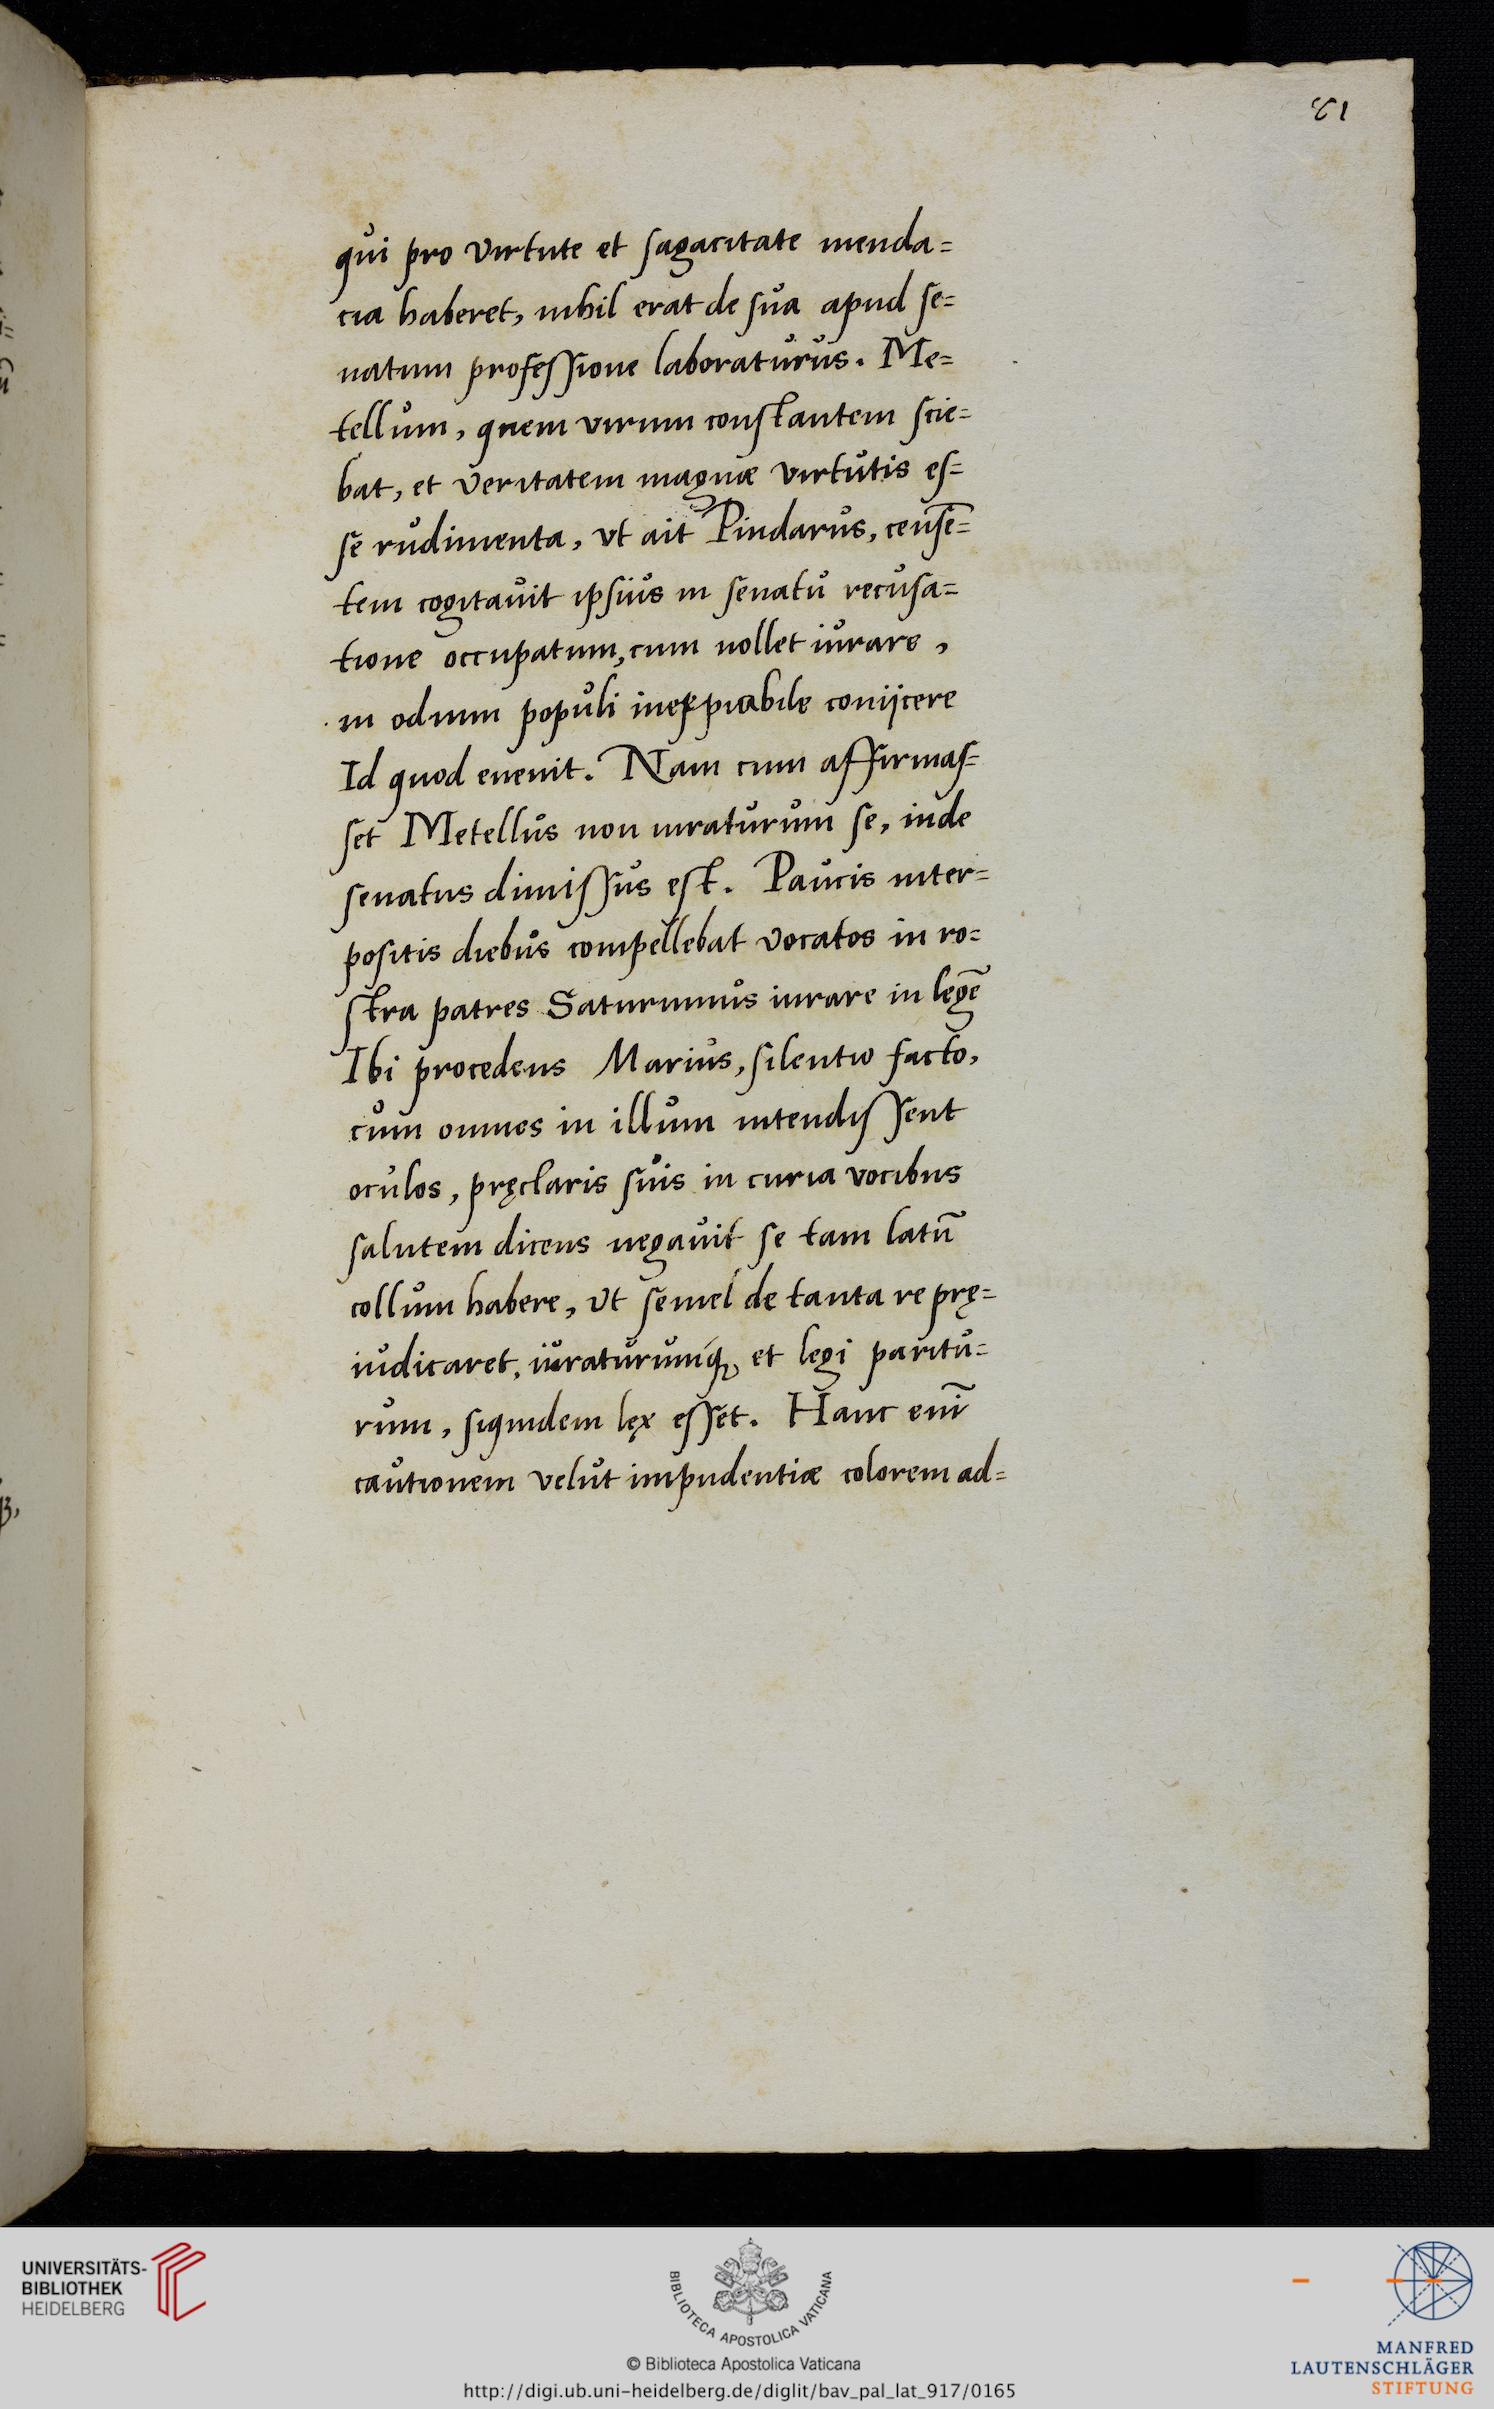 81
qui pro virtute et sagacitate menda=
cia haberet, nihil erat de sua apud se=
natum professione laboraturus. Me=
tellum, quem virum constantem scie=
bat, et veritatem magnæ virtutis es=
se rudimenta, vt ait Pindarus, censē=
tem cogitavit ipsius in senatu recusa=
tione occupatum, cum nollet iurare,
in odium populi inexpiabile coniicere
Id quod evenit. Nam cum affirmas=
set Metellus non iuraturum se, inde
senatus dimissus est. Paucis inter=
positis diebus compellebat vocatos in ro=
stra patres Saturninus iurare in legē
Ibi procedens Marius, silentio facto,
cum omnes in illum intendissent
oculos, pręclaris suis in curia vocibus
salutem dicens negavit se tam latū
collum habere, vt semel de tanta re prę=
iudicaret, iuraturumq́ꝫ et legi paritu=
rum, siquidem lex esset. Hanc enī
cautionem velut impudentiæ colorem ad=
UNIVERSITÄTS-
BIBLIOTHEK
HEIDELBERG
BIBLIOTECA APOSTOLICA VATICANA
© Biblioteca Apostolica Vaticana
http://digi.ub.uni-heidelberg.de/diglit/bav_pal_lat_917/0165
MANFRED
LAUTENSCHLÄGER
STIFTUNG